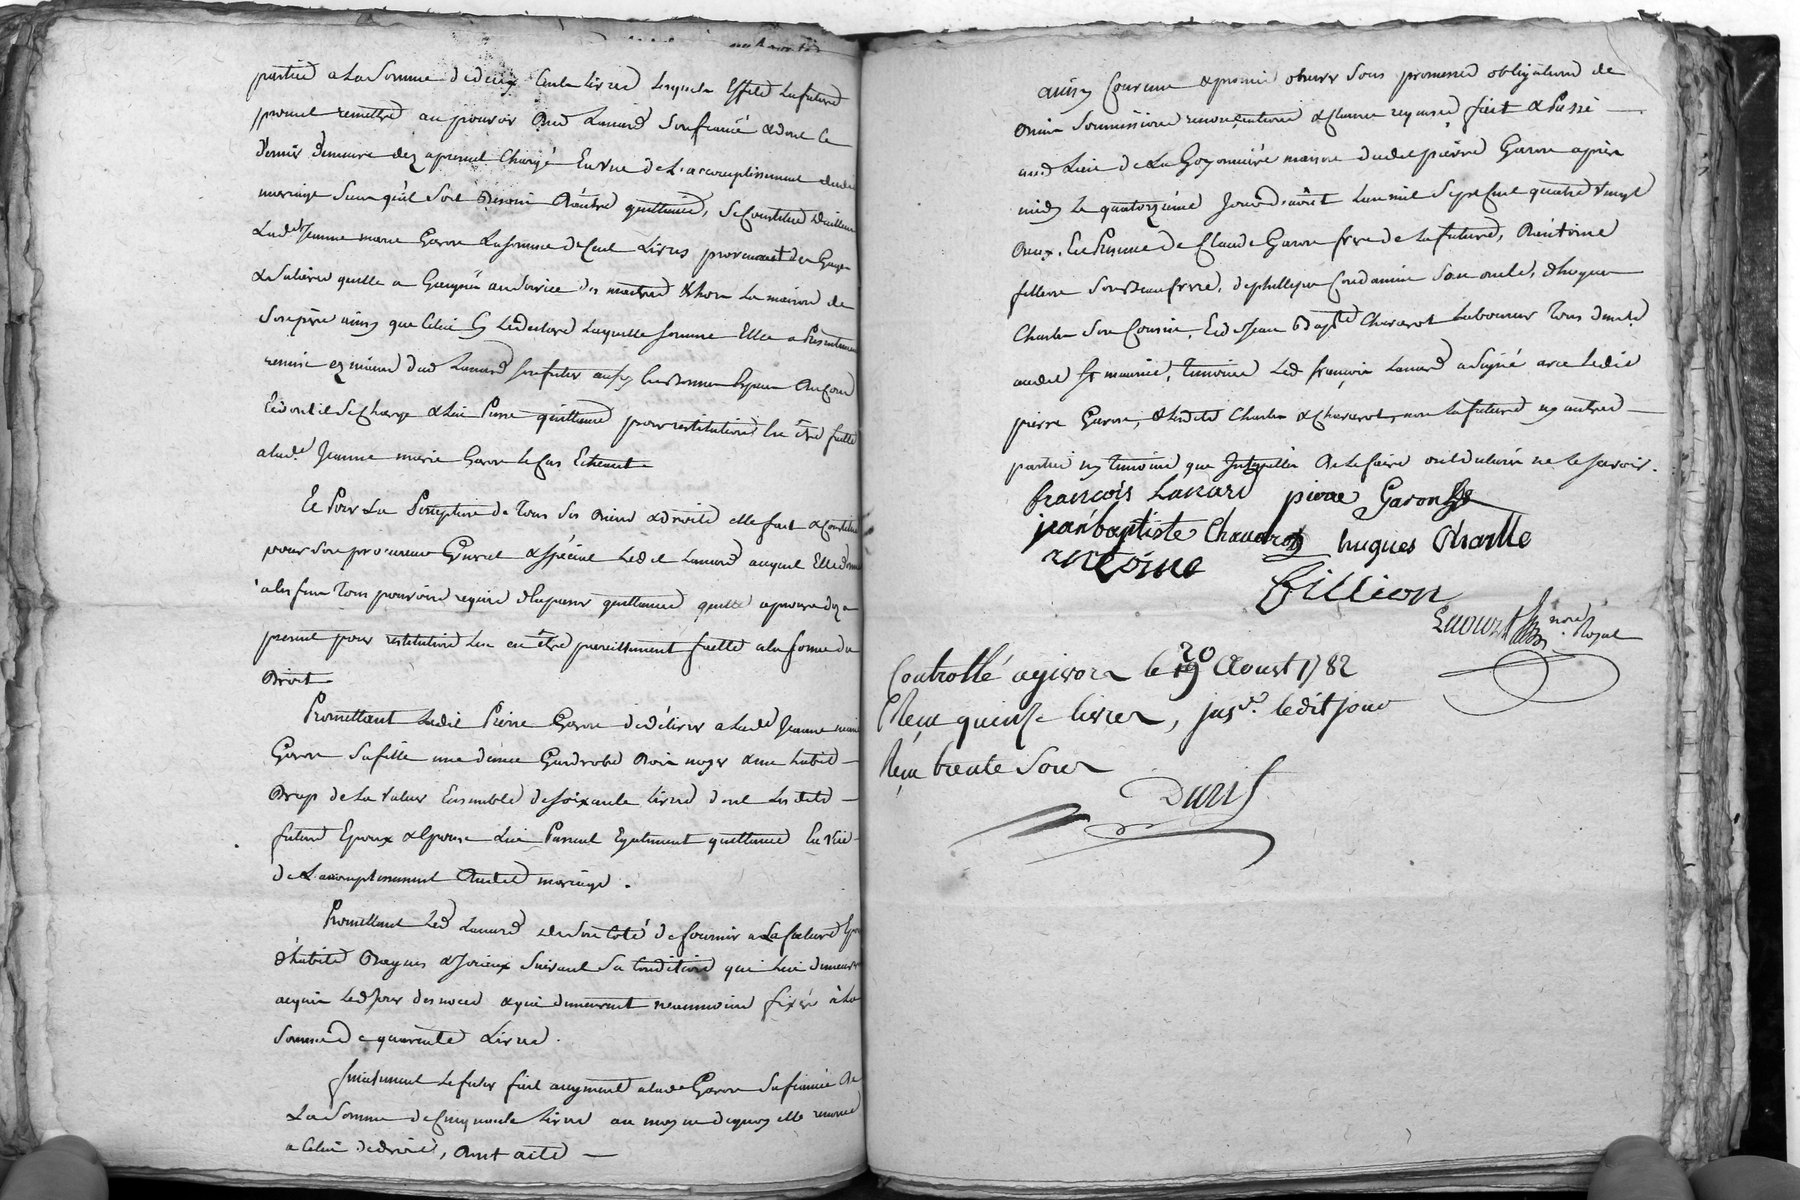 parties a La Somme de deux Cents Livres Lesquels Effets La future
promet remettre au pouvoir dud. Lanard Son fiancé & dont ce
dernier demeure dez apresent Chargé En vue de L'accomplissement dudit
mariage Sans qu'il Soit Besoin d'autre quittance, Se Constitue d'ailleurs
Lad.e Jeanne marie Garon La Somme de Cent Livres provenant des Gages
& Salaires quelle a Gaignés au Service des maitres & hors La maison de
Son père ainsy que Celui Cy Le declare Laquelle Somme Elle a Presentement
remise ez mains dud. Lanard Son futur
dont il Se Charge & Lui Passe quittance pour restitution Lui être faitte
a lad.e Jeanne marie Garon le Cas Echeant
Et Pour La Perception de Tous Ses Biens & droits elle fait & Constitue
pour Son procureur General & Spécial Ledit Lanard auquel Elle donne
a Ces fins Tous pouvoirs requis d'En passer quittances quelle aprouve dez a
present pour restitution Lui en être pareillement faitte a la forme du
Droit
Promettant Ledit Pierre Garon de délivrer a Lad.e Jeanne marie
Garon Sa fille une demie Garderobe Bois noyer & un habit
Drap de La Valeur Ensemble de Soixante Livres dont Lesdits
futurs Epoux & Epouse Lui Passent Egalement quittance En Vüe
de L'accomplissement dudit mariage.
Promettant Led. Lanard de Son Coté de fournir a La future
d'habits Bagues & Joyaux Suivant Sa Condition qui Lui demeureront
acquis Led. Jour des noces & qui demeurent neanmoins fixés à La
Somme de quarante Livres.
finalement Le futur fait augment a lad.e Garon Sa fiancée de
La Somme de Cinquante Livres au moyen de quoy elle renonce
a Celui de droit, Dont acte
ainsy Convenu & promis observer Sous promesses obligations de
Biens Soumissions renonciations & Clauses requises fait & Passé
aud. Lieu de La Goyonnière maison dudit pierre Garon après
midy Le quatorzième Jour d'août L'an mil Sept Cent quatre Vingt
deux. En Presence de Claude Garon frere de La future, d'Antoine
fillion Son Beau frere, de philippe Condamin Son oncle, d'hugues
Charles Son Cousin, Et de Jean Bapt.te Chavarot Laboureur Tous demt.
audit St maurice, Temoins Led. françois Lanard a Signé avec Ledit
pierre Garon, & Lesdits Charles & Chavarot, non La future ny autres
parties ny Temoins que Interpellés de Le faire ont declaré ne le Savoir.
françois Lanard pierre Garon
jeanbaptiste Chavarot hugues Charlle
antoine
fillion
nore Royal
Controllé a givors le 20 Aoust 1782
Reçu quinze livres, jnsé. ledit jour
Reçu trente Sous
Duris